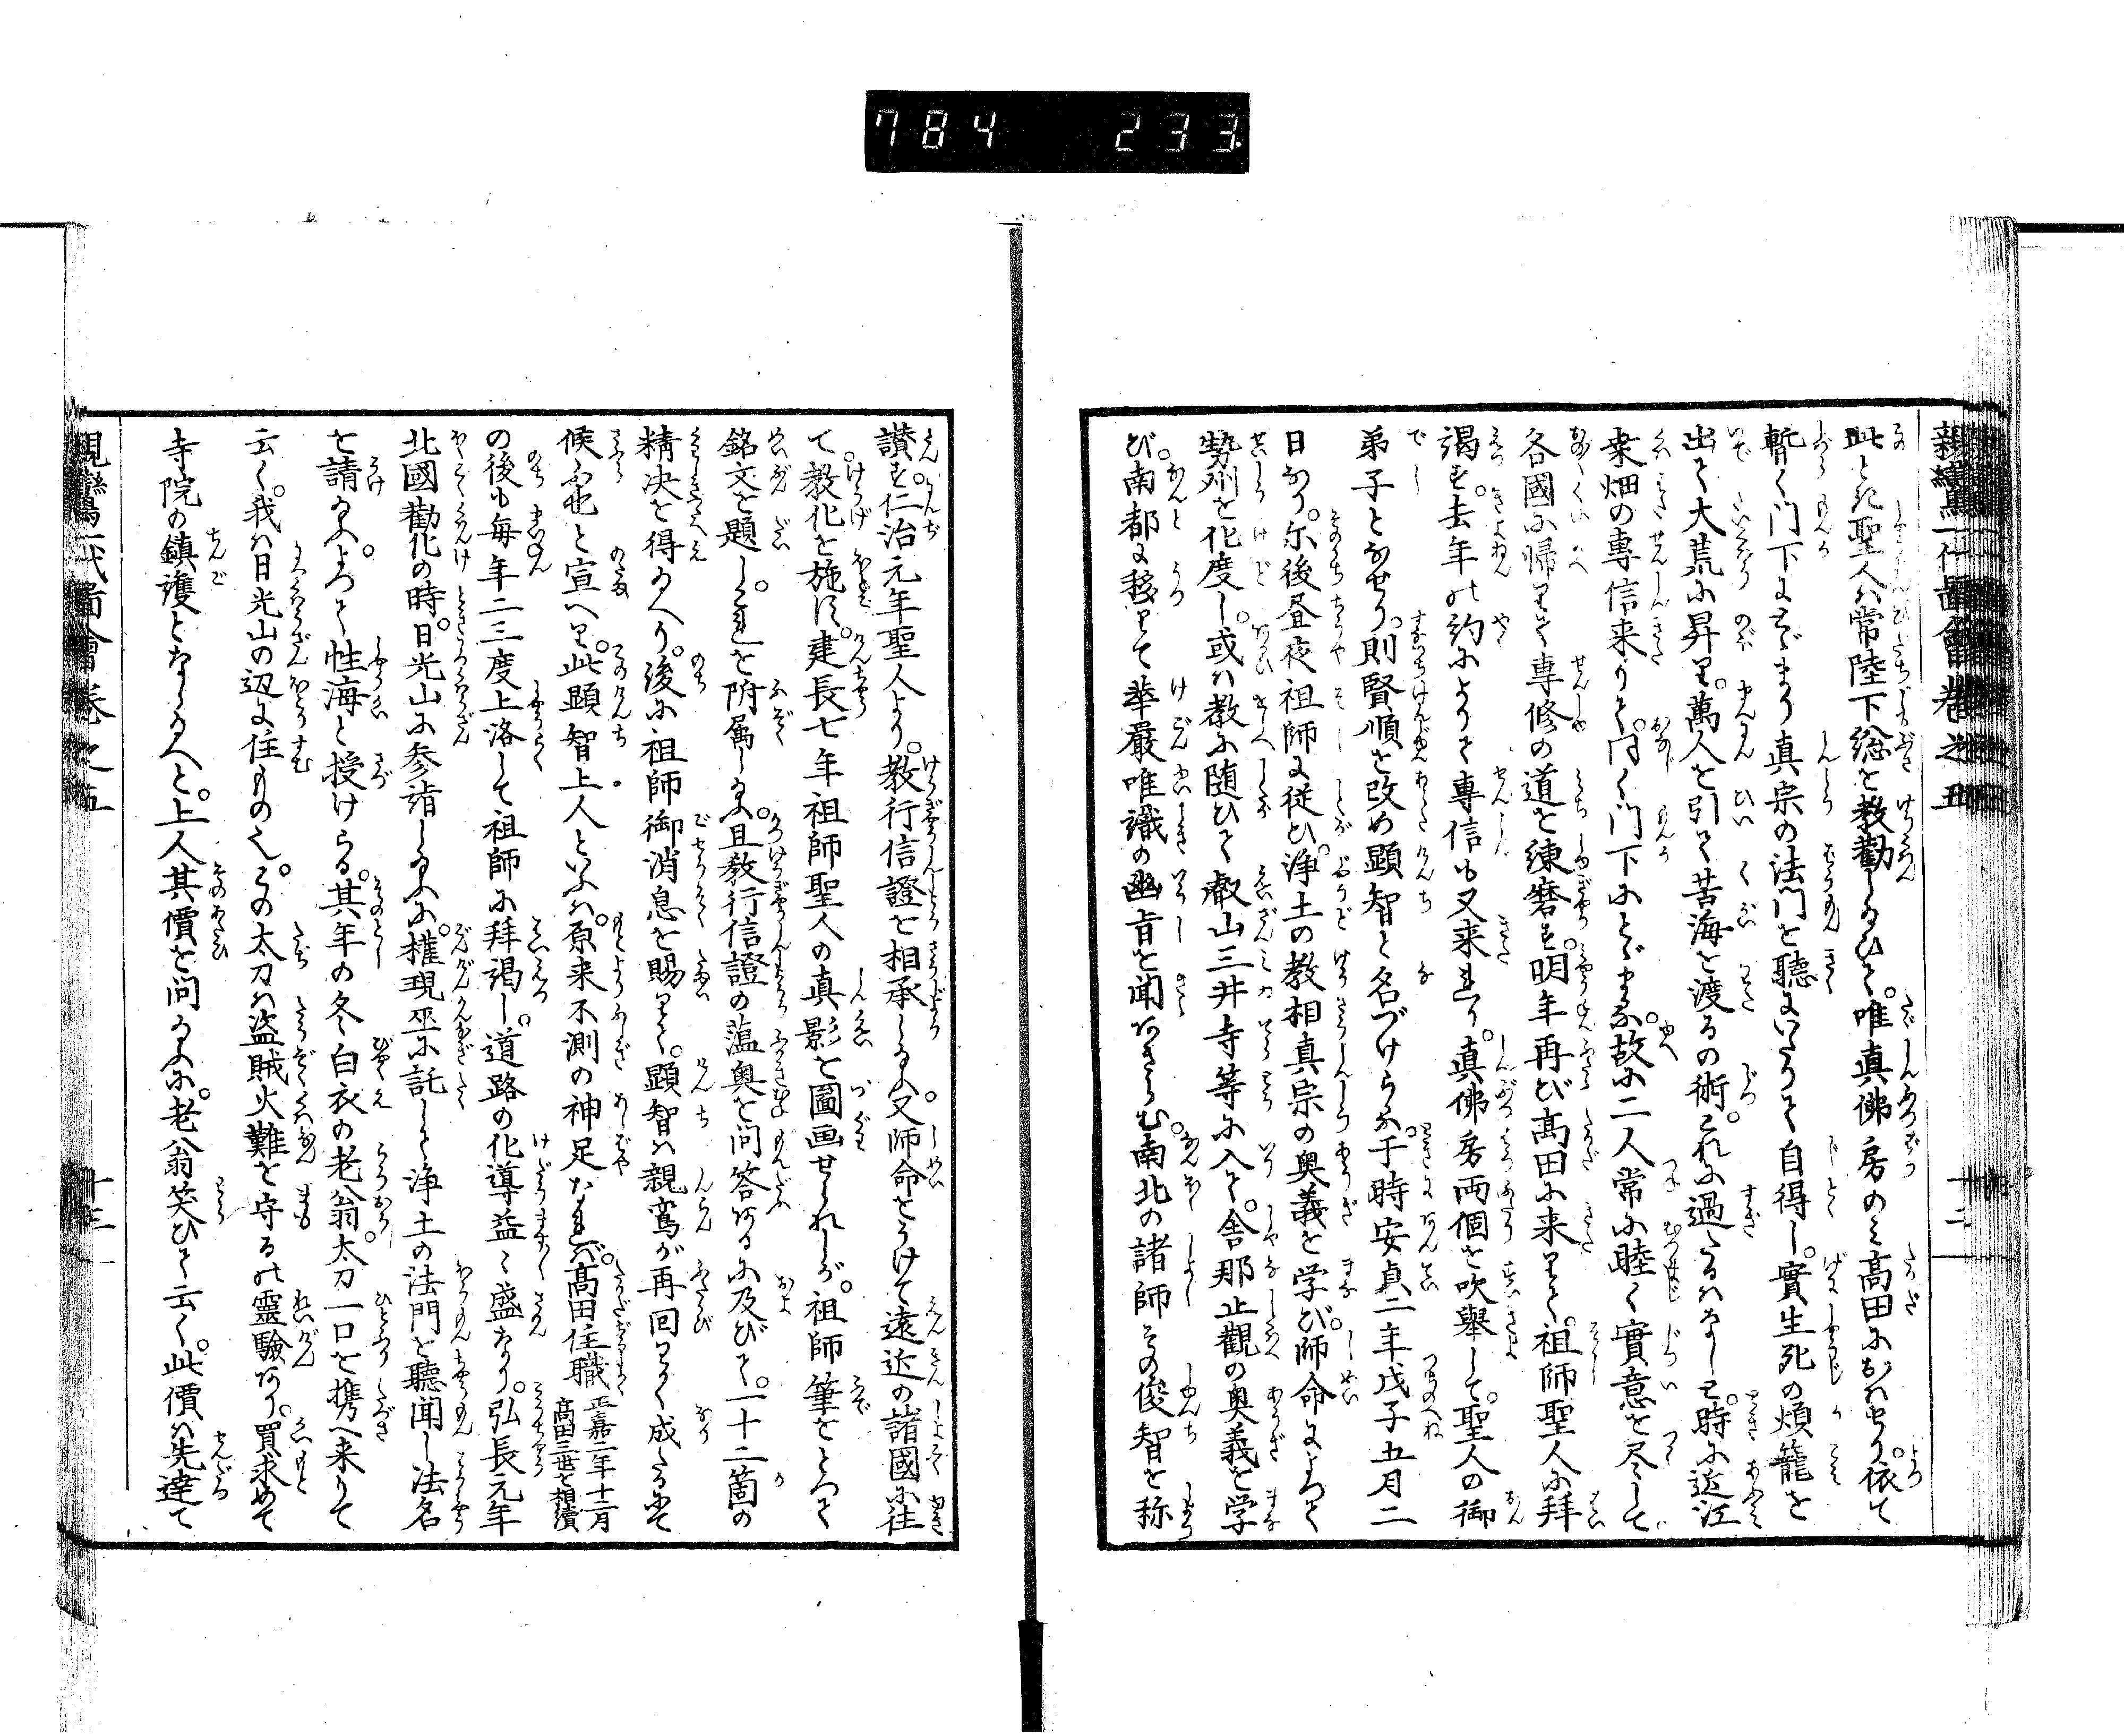 784 233
親鸞一代圖會卷之五
十二
此とき聖人ハ常陸下総を教勸し給ひて。唯真佛房のミ高田におハせり。依て
暫く門下にとゞまり真宗の法門を聽にいたりて自得し。實生死の煩籠を
出て大荒に昇り。萬人を引て苦海を渡るの術。これに過たるハなしと。時に近江
桒畑の專信来りて。同く門下にとゞまる。故に二人常に睦く實意を尽して
各國に帰りて専修の道を練磨す。明年再び髙田に来りて。祖師聖人に拜
謁す。去年の約によりて專信も又来れり。真佛房両個を吹舉して。聖人の御
弟子となせり。則賢順を改め顕智と名づけらる。于時安貞二年戊子五月二
日なり。尓後昼夜祖師に従ひ。浄土の教相真宗の奥義を学び。師命によつて
勢州を化度し。或ハ教に随ひて叡山三井寺等に入て。舎那止觀の奥義を学
び。南都に移りて華嚴唯識の幽旨を聞あきらむ。南北の諸師その俊智を称
讃す。仁治元年聖人より。教行信證を相承し給ふ。又師命をうけて遠近の諸國に往
て。教化を施す。建長七年祖師聖人の真影を圖画せられしが。祖師筆をとつて
銘文を題し。これを附属し給ふ。且教行信證の薀奥を問答あるに及びて。一十二箇の
精决を得給へり。後に祖師御消息を賜りて。顕智ハ親鸞が再回わく成たるにて
候ふ也と宣へり。此顕智上人といふハ。原来不測の神足なれバ。髙田住職
正嘉二年十二月
髙田三世を相續
の後も毎年二三度上洛して祖師に拜謁し。道路の化導益々盛なり。弘長元年
北國勸化の時。日光山に参詣し給ふに。權現巫に託して浄土の法門を聽聞し法名
を請給ふ。よつて性海と授けらる。其年の冬白衣の老翁。太刀一口を携へ来りて
云く。我ハ日光山の辺に住もの也。この太刀ハ盗賊火難を守るの靈驗あり。買求めて
寺院の鎮護となし給へと。上人其價を问給ふに。老翁笑ひて云く。此價ハ先達て
親鸞一代圖會卷之五
十三